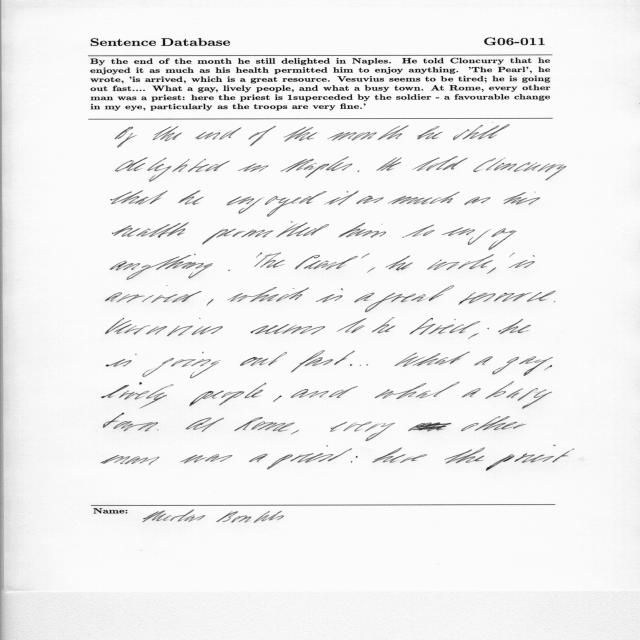 Sentence Database G06-011
By the end of the month he still delighted in Naples. He told Cloncurry that he
enjoyed it as much as his health permitted him to enjoy anything. 'The Pearl', he
wrote, 'is arrived, which is a great resource. Vesuvius seems to be tired; he is going
out fast.... What a gay, lively people, and what a busy town. At Rome, every other
man was a priest: here the priest is 1superceded by the soldier - a favourable change
in my eye, particularly as the troops are very fine.'
By the end of the month he still
delighted in Naples. He told Cloncurry
that he enjoyed it as much as his
health permitted him to enjoy
anything. 'The Pearl', he wrote,' is
arrived, which is a great resource.
Vesuvius seems to be tired; he
is going out fast... What a gay,
lively people, and what a busy
town. At Rome, every other
man was a priest: here the priest
Name: